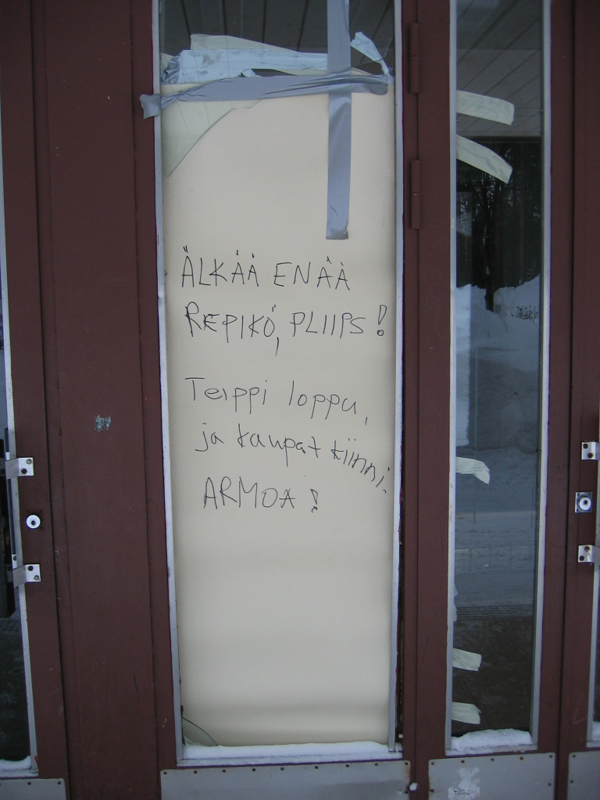 ÄLKÄÄ ENÄÄ
REPIKÖ, PLIIPS!
Teippi loppu,
ja kaupat kiinni.
ARMOA!